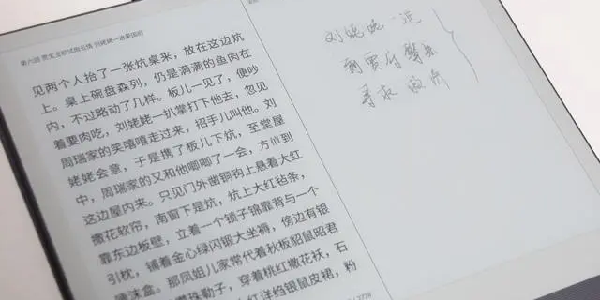 第六回 贾宝玉初试云雨情 刘姥姥一进荣国府
见两个人抬了一张炕桌来，放在这边炕
上。桌上碗盘森列，仍是满满的鱼肉在
内，不过略动了几样。板儿一见了，便吵
着要肉吃，刘姥姥一扒掌打下他去，忽见
周瑞家的笑嘻嘻走过来，招手儿叫他。刘
姥姥会意，于是携了板儿下炕，至堂屋
中，周瑞家的又和他唧唧了一会，方到
这边屋内来。只见门外錾铜钩上悬着大红
撒花软帘，南窗下是炕，炕上大红毡条，
靠东边板壁，立着一个锁子锦靠背与一个
引枕，铺着金心绿闪缎大坐褥，傍边有银
唾沫盒。那凤姐儿家常代着秋板貂鼠昭君
攒珠勒子，穿着桃红撒花袄，石
大红洋绉银鼠皮裙，粉
刘姥姥一进